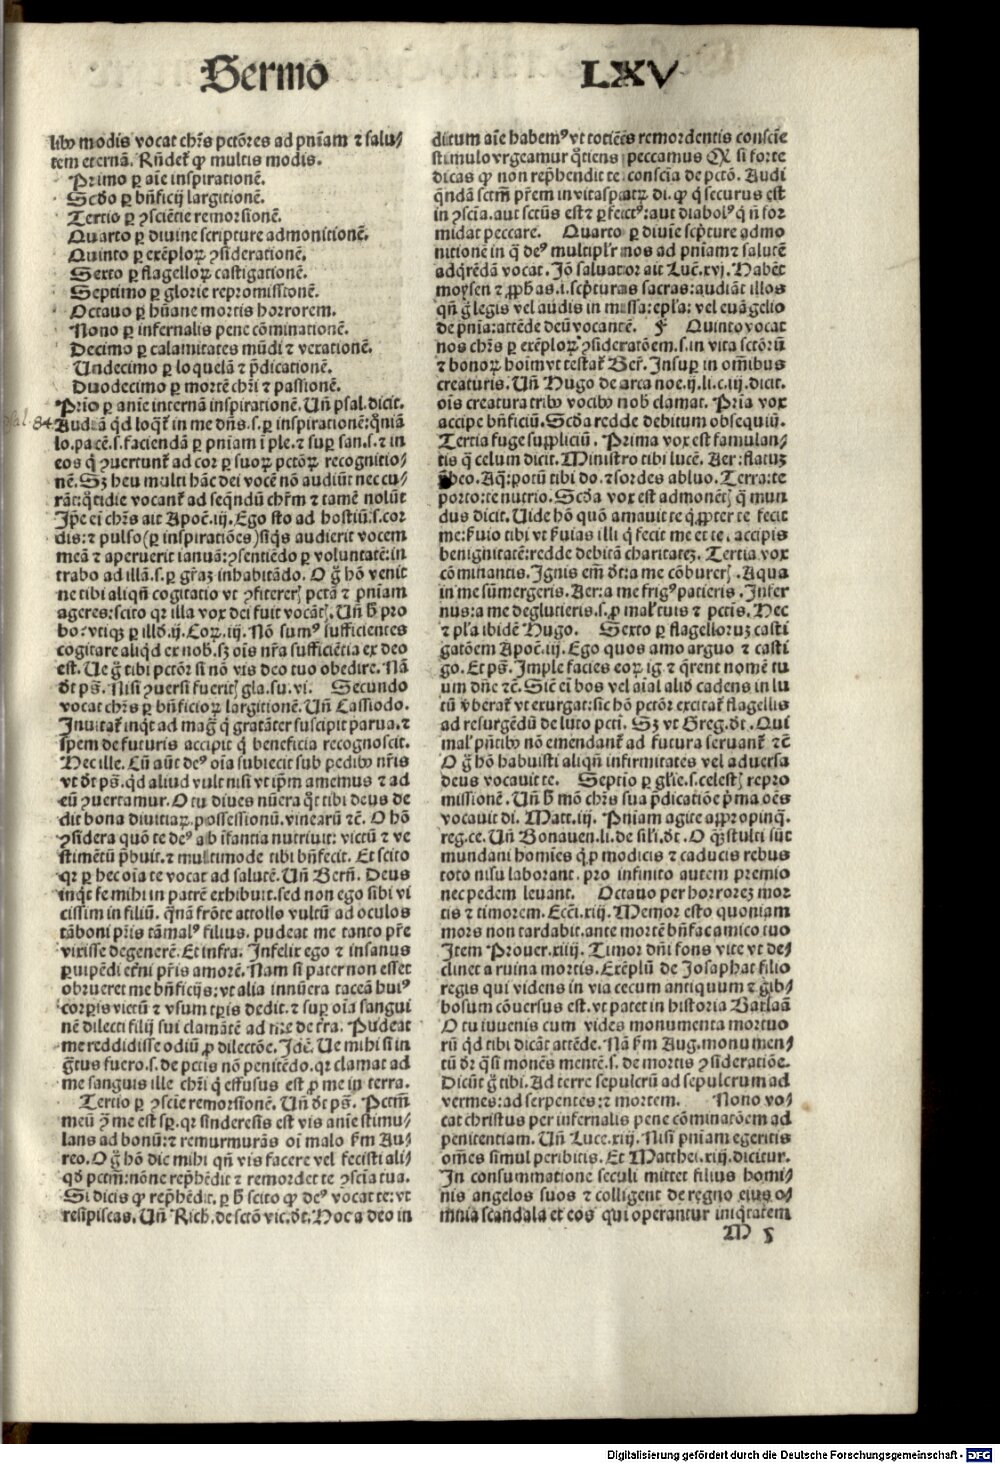 Sermo LXV
libꝰ modis vocat chr̄s pctōres ad pn̄iam ⁊ salu⸗
tem eternā. Rn̄deť ꝙ multis modis.
Primo ꝑ aīe inspirationē.
Scd̄o ꝑ bn̄ficij largitionē.
Tertio ꝑ ꝯsciētie remorsionē.
Quarto ꝑ divine scripture admonitionē.
Quinto ꝑ exēploꝝ ꝯsiderationē.
Sexto ꝑ flagelloꝝ castigationē.
Septimo ꝑ glorie repromissionē.
Octauo ꝑ hūane mortis horrorem.
Nono ꝑ infernalis pene cōminationē.
Decimo ꝑ calamitates mūdi ⁊ vexationē.
Undecimo ꝑ loquelā ⁊ p̄dicationē.
Duodecimo ꝑ mortē chr̄i ⁊ passionē.
Prīo ꝑ anīe internā inspirationē. Un̄ psal. dicit.
84. Audiā qd loqť in me dn̄s.s.ꝑ inspirationē:qm̄ia
lo.pacē.s.faciendā ꝑ pn̄iam ī ple.⁊ suꝑ san.s.⁊ in
eos q̇ ꝯuertunť ad cor ꝑ suoꝝ pctōꝝ recognitio⸗
nē. Sꝫ heu multi hāc dei vocē nō audiūt nec cu⸗
rāt:q̊tidie vocanť ad seq̄ndū chr̄m ⁊ tamē nolūt
Ipe ei chr̄s ait Apoč.iij. Ego sto ad hostiū:s.cor
dis:⁊ pulso(ꝑ inspiratiōes)siq̇s audierit vocem
meā ⁊ aperuerit ianuā:ꝯsentiēdo ꝑ voluntatē:in
trabo ad illā.s.ꝑ gr̄aꝫ inhabitādo. O g̊ hō venit
ne tibi aliqn̄ cogitatio vt ꝯfitereris pctā ⁊ pn̄iam
ageres:scito qr illa vox dei fuit vocātis. Un̄ h̄ pro
bo:vtiqꝫ ꝑ illd̄.ij. Coꝝ.iij. Nō sumꝰ sufficientes
cogitare aliqd ex nob.sꝫ oīs nr̄a sufficiētia ex deo
est. Ue g̊ tibi pctōr si nō vis deo tuo obedire. Nā
d̄t ps̄. Nisi ꝯuersi fueritis gla.su.vi. Secundo
vocat chr̄s ꝑ bn̄ficioꝝ largitionē. Un̄ Cassiodo.
Inuitať inq̇t ad mag̊ q̇ gratāter suscipit parua.⁊
spem de futuris accipit q̇ beneficia recognoscit.
Hec ille. Cū aūt deꝰ oīa subiecit sub pedibꝰ nr̄is
vt d̄t ps̄.qd aliud vult nisi vt ip̄m amemus ⁊ ad
eū ꝯuertamur. O tu diues nūera q̄t tibi deus de
dit bona diuitiaꝝ.possessionū.vinearū ⁊c̄. O hō
ꝯsidera quō te deꝰ ab īfantia nutriuit: victū ⁊ ve
stimētū p̄buit.⁊ multimode tibi bn̄fecit. Et scito
qr ꝑ hec oīa te vocat ad salutē. Un̄ Bern̄. Deus
inq̇t se mihi in patrē exhibuit.sed non ego sibi vi
cissim in filiū. qnā frōte attollo vultū ad oculos
tā boni pr̄is tā malꝰ filius. pudeat me tanto pr̄e
vixisse degenerē. Et infra. Infelix ego ⁊ insanus
ꝑuipēdi et̄ni pr̄is amorē. Nam si pater non esset
obrueret me bn̄ficijs:vt alia innūera taceā huiꝰ
corꝑis victū ⁊ vsum tꝑis dedit.⁊ suꝑ oīa sangui
nē dilecti filij sui clamātē ad me de tr̄a. Pudeat
me reddidisse odiū ꝓ dilectōe. Idē. Ue mihi si in
g̊tus fuero.s. de pctis nō penitēdo.qr clamat ad
me sanguis ille chr̄i q̇ effusus est ꝓ me in terra.
Tertio ꝑ ꝯscie remorsionē. Un̄ d̄t ps̄. Pctm̄
meū ꝯ̄ me est sꝑ.qr sinderesis est vis anīe stimu⸗
lans ad bonū:⁊ remurmurās oī malo ẜm Au⸗
reo. O g̊ hō dic mihi qn̄ vis facere vel fecisti ali⸗
qd̄ pctm̄:nōne rep̄hēdit ⁊ remordet te ꝯscīa tua.
Si dicis ꝙ rep̄hēdit. ꝑ h̄ scito ꝙ deꝰ vocat te:vt
resipiscas. Un̄ Rich. de sctō vic.d̄t. Hoc a deo in
ditum aīe habemꝰ vt totiēs remordentis conscīe
stimulo vrgeamur q̊tiens peccamus Q si forte
dicas ꝙ non rep̄hendit te conscīa de pctō. Audi
q̄ndā sctm̄ pr̄em in vitaspatꝝ di.ꝙ q̇ securus est
in ꝯscīa.aut sctūs est ⁊ ꝑfectꝰ:aut diabolꝰ q̇ n̄ for
midat peccare. Quarto ꝑ diuīe scp̄ture admo
nitionē in q̄ deꝰ multipl'r nos ad pn̄iam ⁊ salutē
adq̇rēdā vocat. Iō saluator ait Lucē.xvj. Habēt
moysen ⁊ ꝓph̄as.i.scp̄turas sacras:audiāt illos
qn̄ g̊ legis vel audis in missa:epl̄a: vel euāgelio
de pn̄ia:attēde deū vocantē. F Quinto vocat
nos chr̄s ꝑ exēploꝝ ꝯsideratōem.s.in vita sctōrū
⁊ bonoꝝ hoīm vt testať Ber̄. Insuꝑ in om̄ibus
creaturis. Un̄ Hugo de arca noe.ij.li.c.iij.dicit.
oīs creatura tribꝰ vocibꝰ nob̄ clamat. Prīa vox
accipe bn̄ficiū. Scd̄a redde debitum obsequiū.
Tertia fuge suppliciū. Prima vox est famulan⸗
tis q̇ celum dicit. Ministro tibi lucē. Aer:flatuꝫ
p̄beo. Aq̄:potū tibi do.⁊ sordes abluo. Terra:te
porto:te nutrio. Scd̄a vox est admonētis q̇ mun
dus dicit. Uide hō quō amauit te q̇ ꝓpter te fecit
me:ẜuio tibi vt ẜuias illi q̇ fecit me et te. accipis
benignitatē:redde debitā charitateꝫ. Tertia vox
cōminantis. Ignis em̄ d̄t:a me cōbureris. Aqua
in me sūmergeris. Aer:a me frigꝰ patieris. Infer
nus:a me deglutieris.s.ꝓ mal'tuis ⁊ pctis. Hec
⁊ pl'a ibidē Hugo. Sexto ꝑ flagelloruꝫ casti
gatōem Apoč.iij. Ego quos amo arguo ⁊ casti
go. Et ps̄. Imple facies eoꝝ ig.⁊ q̄rent nomē tu
um dn̄e ⁊c̄. Sic̄ ei bos vel aīal aliō cadens in lu
tū v̄berať vt exurgat:sic hō pctōr excitať flagellis
ad resurgēdū de luto pcti. Sꝫ vt Greg.d̄t. Qui
mal'pn̄tibꝰ nō emendanť ad futura seruanť ⁊c̄
O g̊ hō habuisti aliqn̄ infirmitates vel aduersa
deus vocauit te. Septīo ꝑ gl'ie.s.celestis repro
missionē. Un̄ h̄ mō chr̄s sua p̄dicatiōe p̄ma oēs
vocauit di. Matt.iij. Pn̄iam agite appropinq̄.
reg.ce. Un̄ Bonauen.li.de sil'i.d̄t. O q̄ꝫ stulti sūt
mundani homīes q̇ ꝓ modicis ⁊ caducis rebus
toto nisu laborant. pro infinito autem premio
nec pedem leuant. Octauo per horroreꝫ mor
tis ⁊ timorem. Ecci.xiij. Memor esto quoniam
mors non tardabit.ante mortē bn̄fac amico tuo
Item Prouer.xiiij. Timor dn̄i fons vite vt de⸗
clinet a ruina mortis. Exēplū de Josaphat filio
regis qui videns in via cecum antiquum ⁊ gib⸗
bosum cōuersus est. vt patet in historia Barlaā
O tu iuuenis cum vides monumenta mortuo
rū qd tibi dicāt attēde. Nā ẜm Aug.monumen⸗
tū d̄r qsi monēs mentē.s. de mortis ꝯsideratiōe.
Dicūt g̊ tibi. Ad terre sepulcrū ad sepulcrum ad
vermes:ad serpentes:⁊ mortem. Nono vo⸗
cat christus per infernalis pene cōminatōem ad
penitentiam. Un̄ Luce.xiij. Nisi pn̄iam egeritis
om̄es simul peribitis. Et Matthei.xiij.dicitur.
In consummatione seculi mittet filius homi⸗
nis angelos suos ⁊ colligent de regno eius o⸗
mnia scandala et eos qui operantur iniq̇tatem
M 5
Digitalisierung gefördert durch die Deutsche Forschungsgemeinschaft - DFG